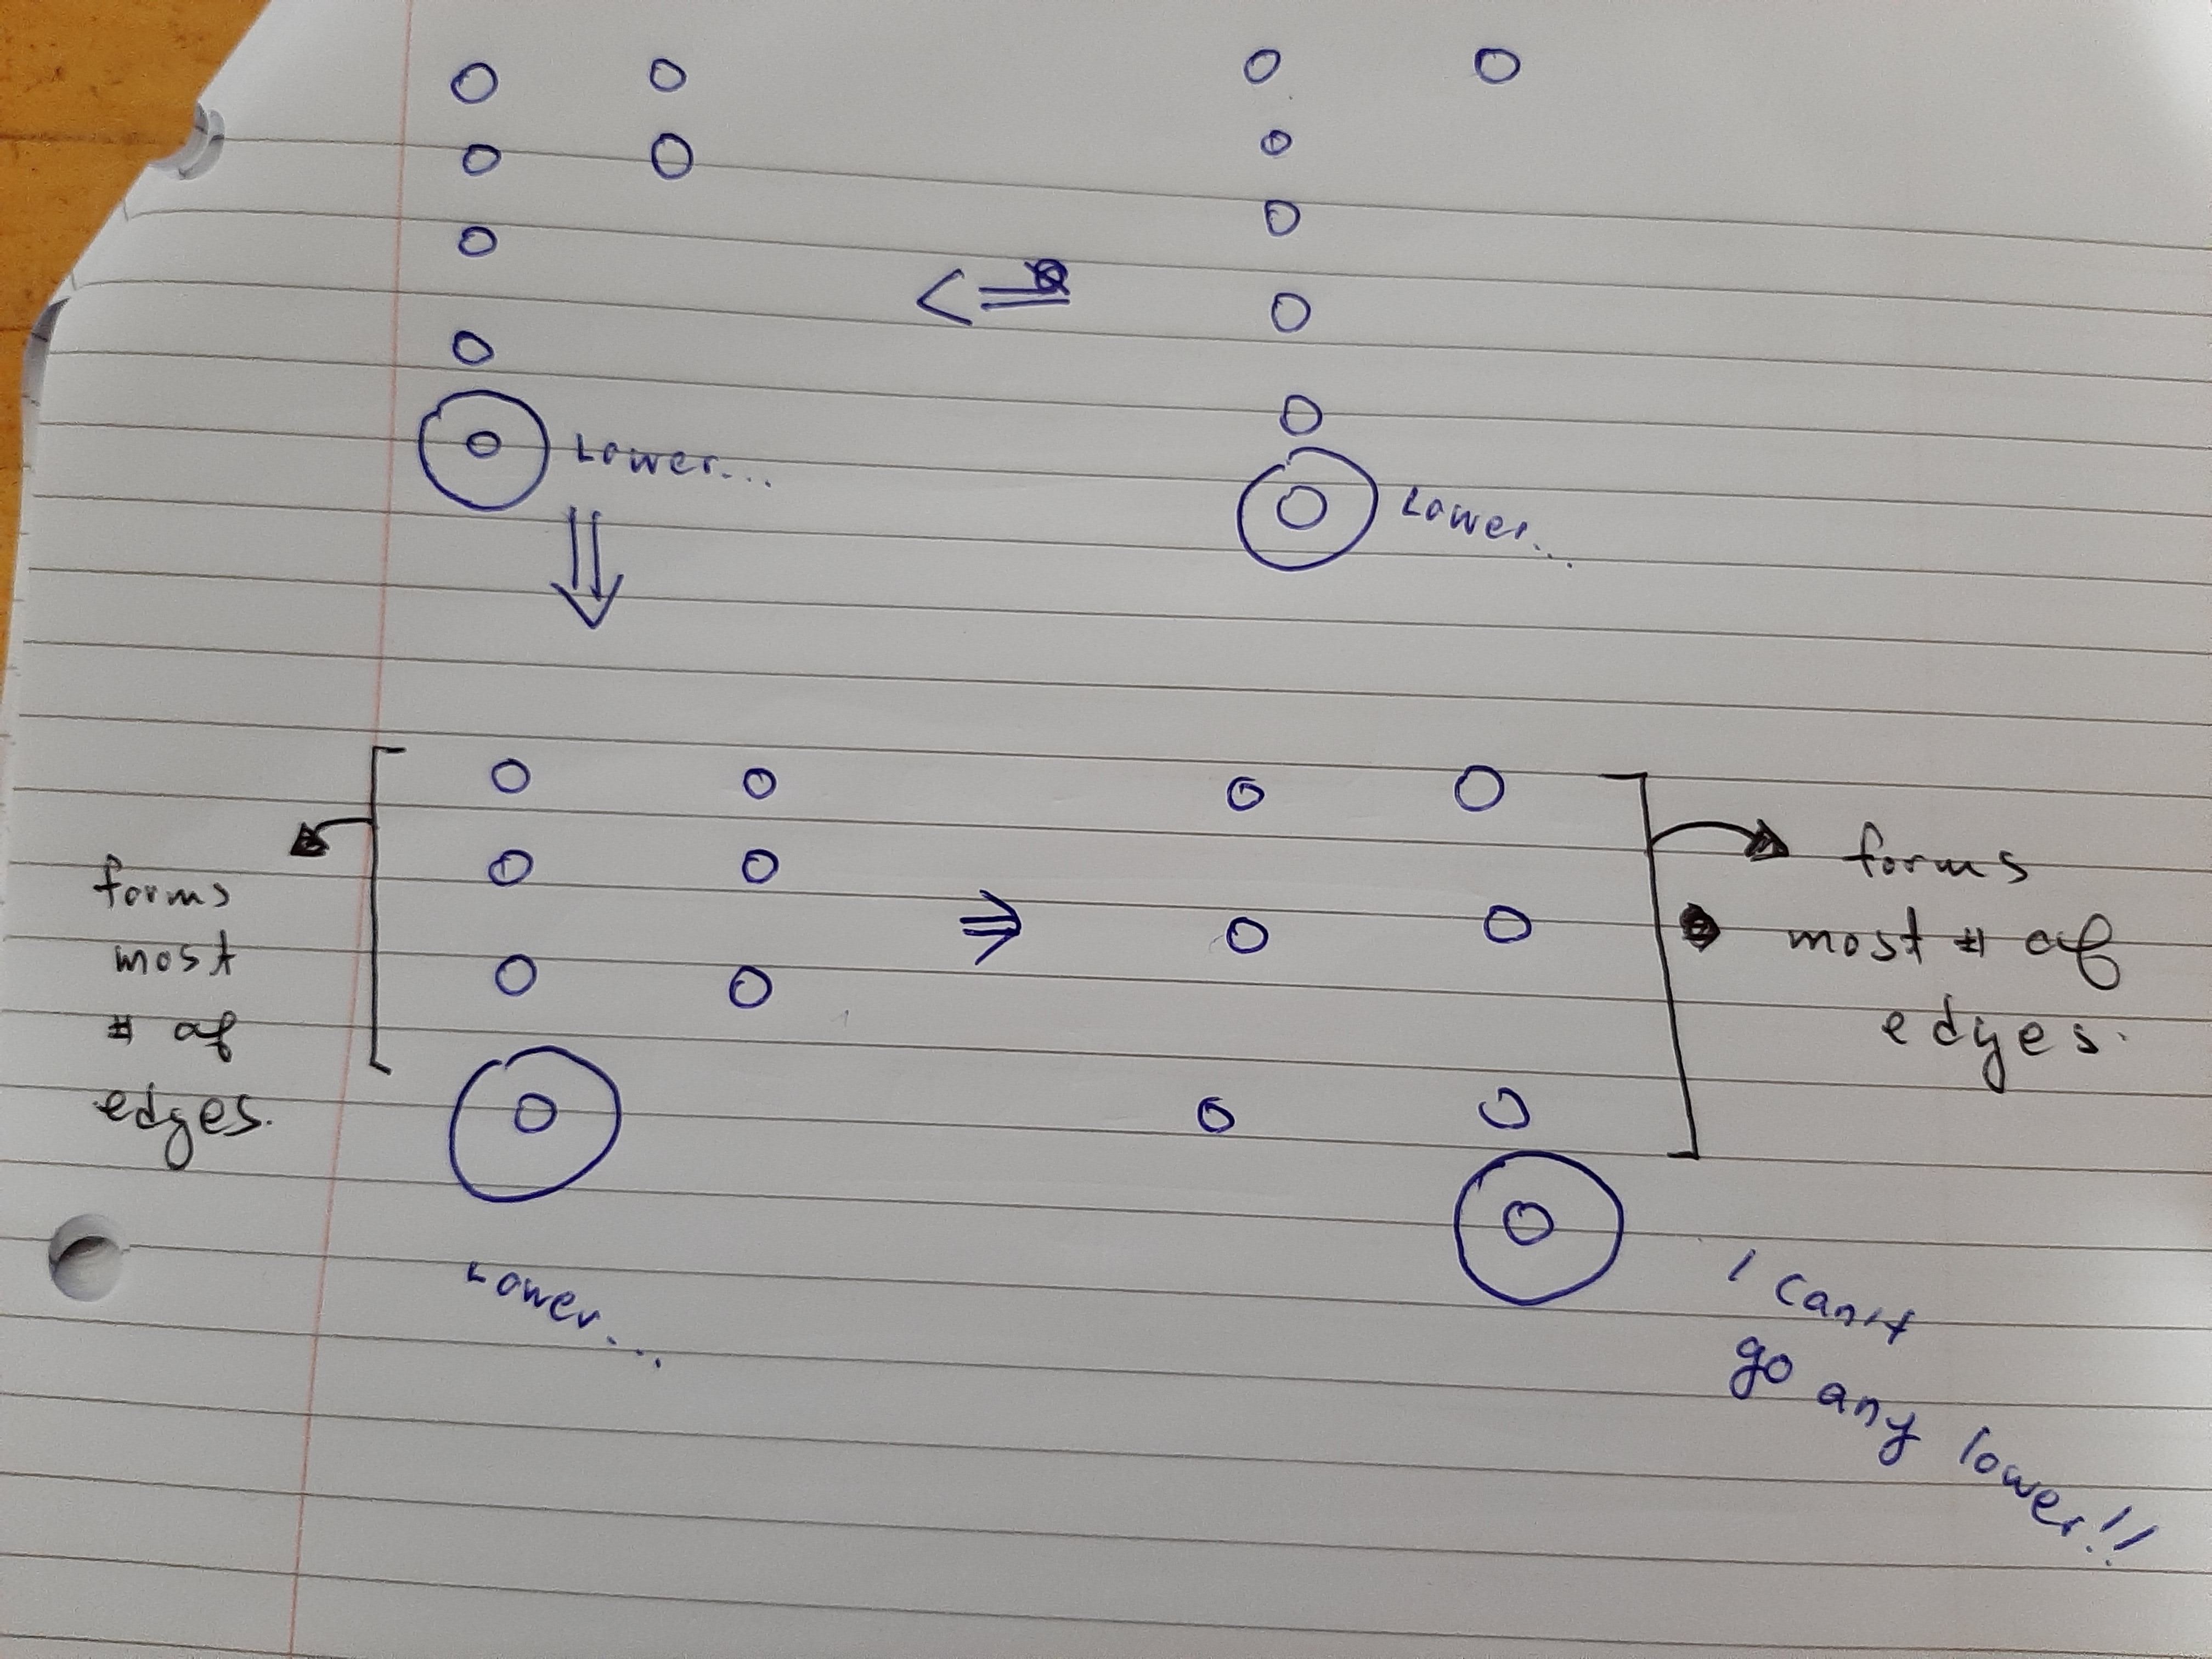 Lower...
Lower...
forms
most
# of
edges.
forms
most # of
edges.
Lower...
I can't
go any lower!!